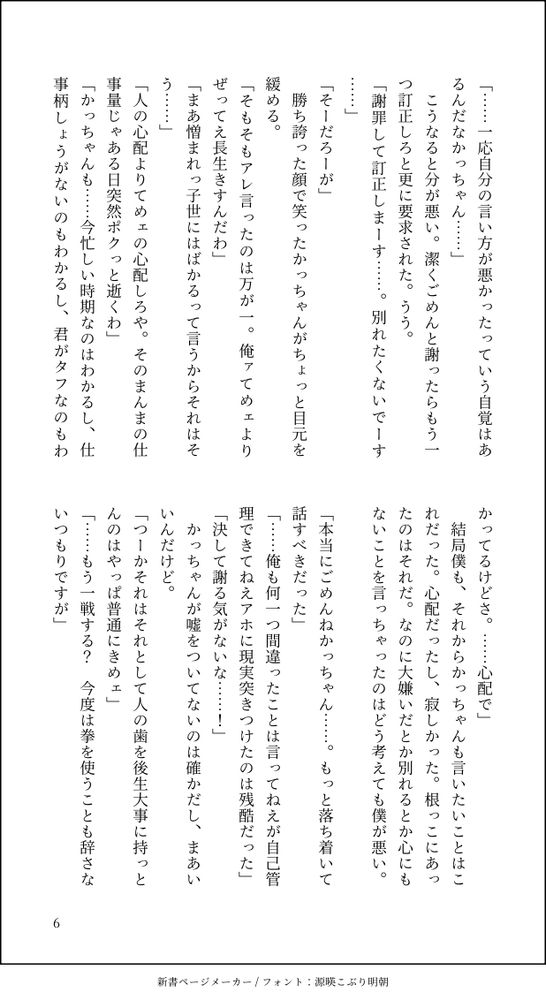 「……一応自分の言い方が悪かったっていう自覚はあ
るんだなかっちゃん……」
　こうなると分が悪い。潔くごめんと謝ったらもう一
つ訂正しろと更に要求された。うう。
「謝罪して訂正しまーす……。別れたくないでーす
……」
「そーだろーが」
　勝ち誇った顔で笑ったかっちゃんがちょっと目元を
緩める。
「そもそもアレ言ったのは万が一。俺ァてめェより
ぜってえ長生きすんだわ」
「まあ憎まれっ子世にはばかるって言うからそれはそ
う……」
「人の心配よりてめェの心配しろや。そのまんまの仕
事量じゃある日突然ポクっと逝くわ」
「かっちゃんも……今忙しい時期なのはわかるし、仕
事柄しょうがないのもわかるし、君がタフなのもわ
かってるけどさ。……心配で」
　結局僕も、それからかっちゃんも言いたいことはこ
れだった。心配だったし、寂しかった。根っこにあっ
たのはそれだ。なのに大嫌いだとか別れるとか心にも
ないことを言っちゃったのはどう考えても僕が悪い。
「本当にごめんねかっちゃん……。もっと落ち着いて
話すべきだった」
「……俺も何一つ間違ったことは言ってねえが自己管
理できてねえアホに現実突きつけたのは残酷だった」
「決して謝る気がないな……！」
　かっちゃんが嘘をついてないのは確かだし、まあい
いんだけど。
「つーかそれはそれとして人の歯を後生大事に持っと
んのはやっぱ普通にきめェ」
「……もう一戦する？　今度は拳を使うことも辞さな
いつもりですが」
6
新書ページメーカー / フォント：源暎こぶり明朝